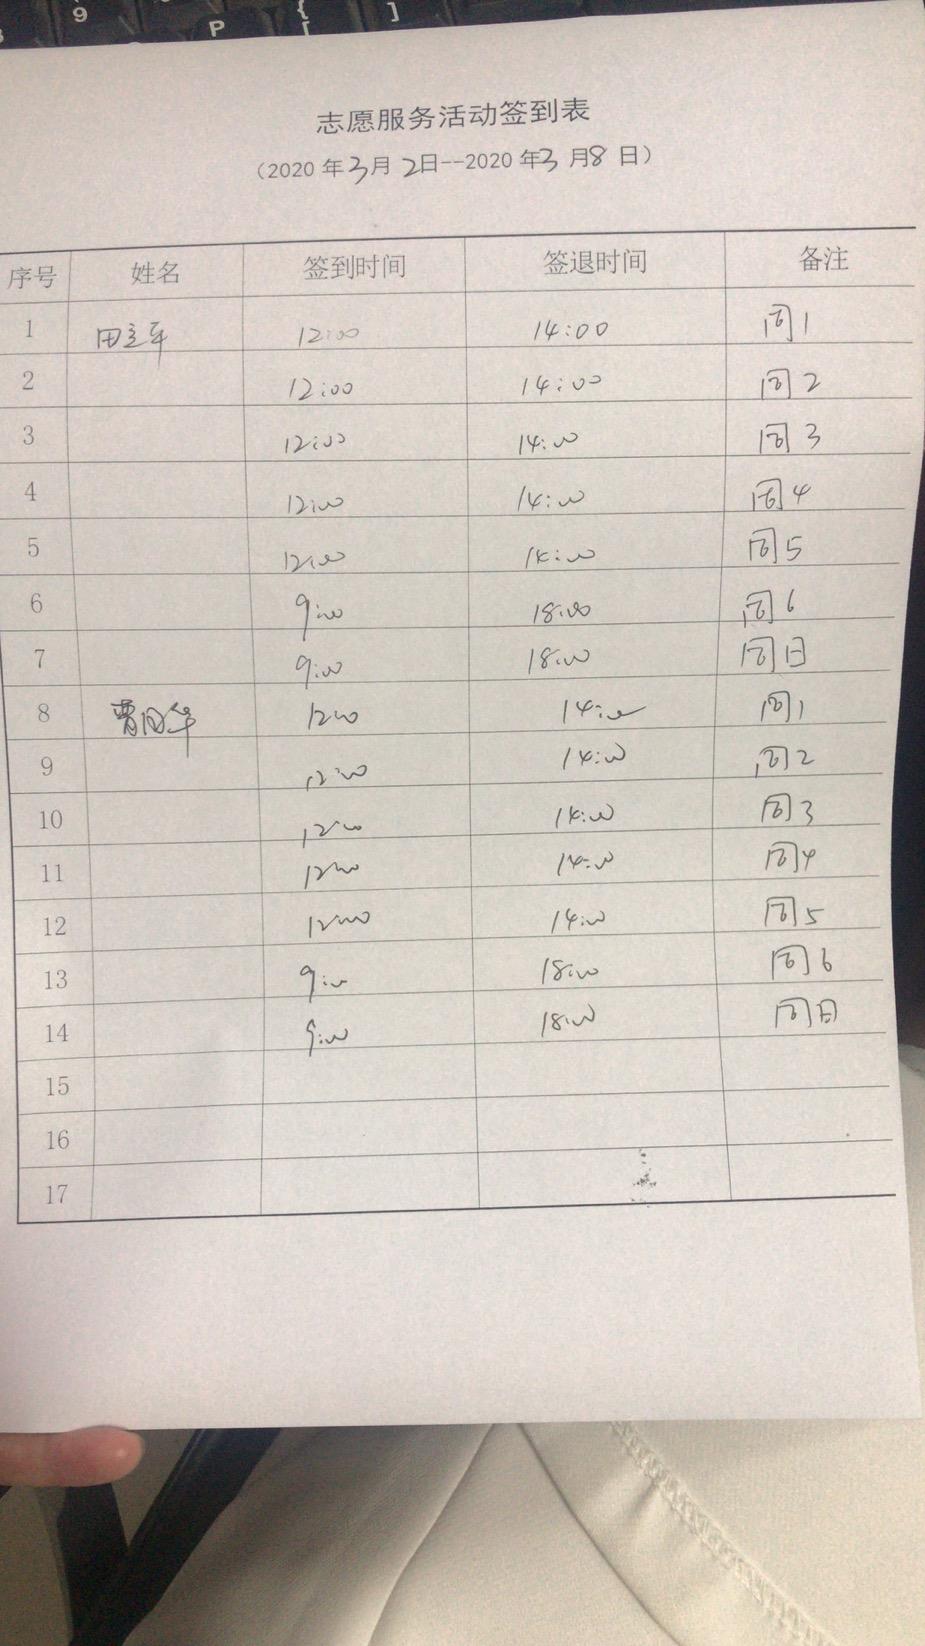 9
{
[
]
P
志愿服务活动签到表
（2020 年3月 2日--2020 年3 月8 日）
序号 姓名 签到时间 签退时间 备注
1 12:00 14:00 周1
2 12:00 14:00 周2
3 12:00 14:00 周3
4 12:00 14:00 周4
5 12:00 14:00 周5
6 9:00 18:00 周6
7 9:00 18:00 周日
8 12:00 14:00 周1
9 12:00 14:00 周2
10 12:00 14:00 周3
11 12:00 14:00 周4
12 12:00 14:00 周5
13 9:00 18:00 周6
14 9:00 18:00 周日
15
16
17